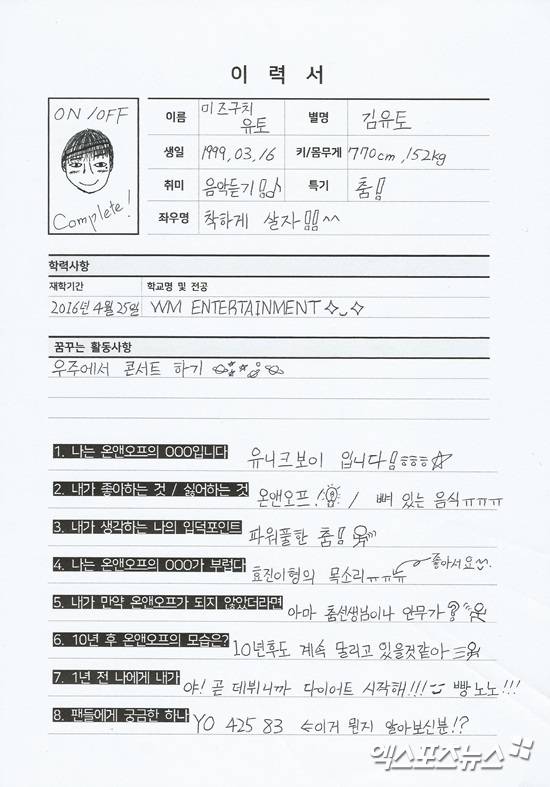 이 력 서
ON/OFF
Complete!
이름 미즈구치 유토 별명 김유토
생일 1999, 03, 16 키/몸무게 770cm, 152kg
취미 음악듣기!!♪ 특기 춤!!
좌우명 착하게 살자!!^^
학력사항
재학기간 학교명 및 전공
2016년 4월 25일 WM ENTERTAINMENT ✧‿✧
꿈꾸는 활동사항
우주에서 콘서트 하기
1. 나는 온앤오프의 OOO입니다 유니크보이 입니다!!ㅎㅎㅎ☆
2. 내가 좋아하는 것 / 싫어하는 것 온앤오프! / 뼈 있는 음식ㅠㅠㅠ
3. 내가 생각하는 나의 입덕포인트 파워풀한 춤!!
4. 나는 온앤오프의 OOO가 부럽다 효진이형의 목소리ㅠㅠㅠ 좋아서요
5. 내가 만약 온앤오프가 되지 않았더라면 아마 춤선생님이나 안무가?
6. 10년 후 온앤오프의 모습은? 10년후도 계속 달리고 있을것같아
7. 1년 전 나에게 내가 야! 곧 데뷔니까 다이어트 시작해!!! 빵 노노!!!
8. 팬들에게 궁금한 하나 YO 425 83 ⇐이거 뭔지 알아보신분!?
엑스포츠뉴스